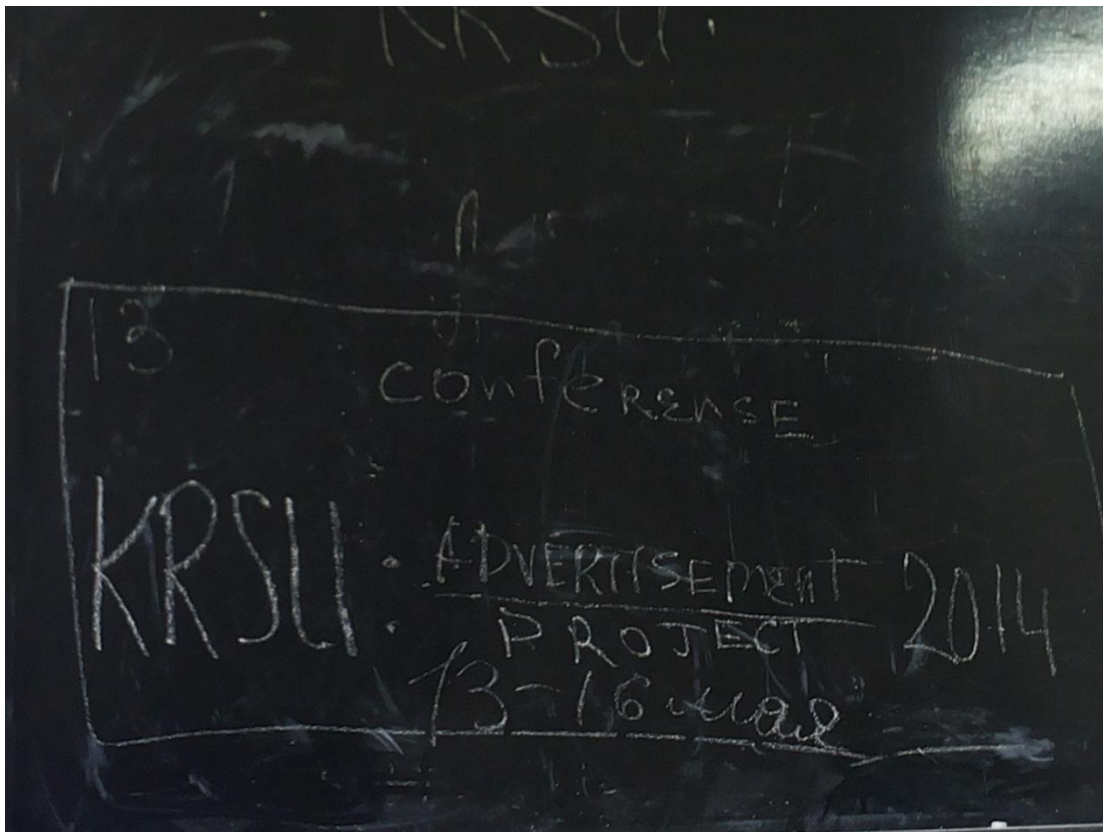 KRSU.
13
conferense
KRSU: ADVERTISEMENT 2014
PROJECT
13-16 мая